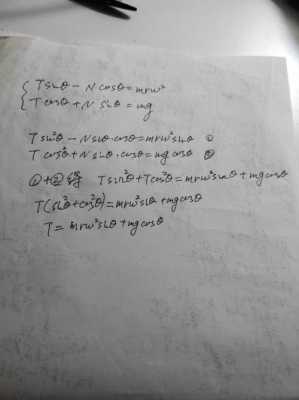 { Tsinθ - Ncosθ = mrw²
Tcosθ + Nsinθ = mg
Tsin²θ - Nsinθ·cosθ = mrw²sinθ ①
Tcos²θ + Nsinθ·cosθ = mgcosθ ②
①+②得 Tsin²θ + Tcos²θ = mrw²sinθ + mgcosθ
T(sin²θ + cos²θ) = mrw²sinθ + mgcosθ
T = mrw²sinθ + mgcosθ